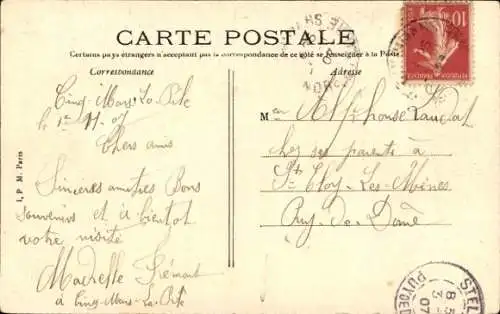 CARTE POSTALE
Certains pays étrangers n'acceptant pas la correspondance de ce côté se renseigner à la Poste
Correspondance
Adresse
Cinq-Mars-La-Pile
le 1er 11-07
Chers amis
Sincères amitiés Bons
souvenirs et à bientot
votre visite
Madelle Frémont
à Cinq-Mars-La-Pile
Mon Alphonse Laudat
chez ses parents à
Ste Eloy-Les-Mines
Puy-de-Dôme
I. P. M. Paris
10
PUY DE D
STE
8 5
3
07